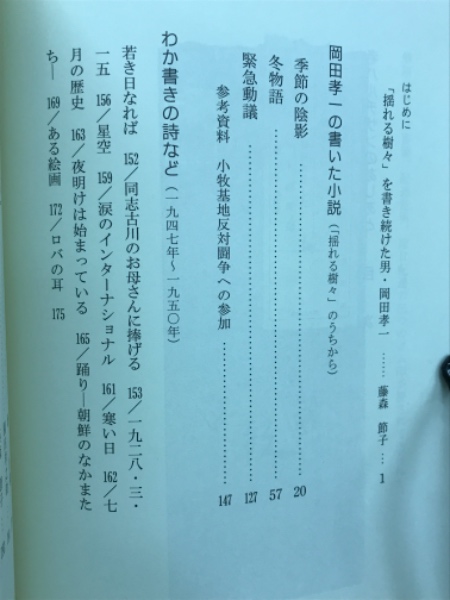 はじめに
「揺れる樹々」を書き続けた男・岡田孝一 …… 藤森 節子 … 1
岡田孝一の書いた小説(「揺れる樹々」のうちから)
季節の陰影 …… 20
冬物語 …… 57
緊急動議 …… 127
参考資料 小牧基地反対闘争への参加 …… 147
わか書きの詩など(一九四七年～一九五〇年)
若き日なれば 152/同志古川のお母さんに捧げる 153/一九二八・三・
一五 156/星空 159/涙のインターナショナル 161/寒い日 162/七
月の歴史 163/夜明けは始まっている 165/踊り―朝鮮のなかまた
ち― 169/ある絵画 172/ロバの耳 175